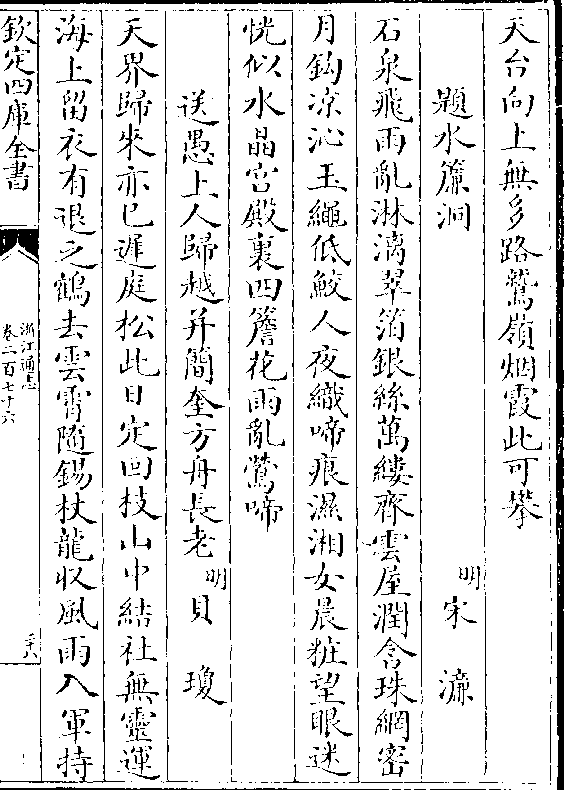 天台向上無多路鷲嶺烟霞此可攀
題水簾洞
明宋濂
石泉飛雨亂淋漓翠箔銀絲萬縷齊雲屋潤含珠網密
月鈎凉沁玉繩低鮫人夜織啼痕濕湘女晨粧望眼迷
恍似水晶宫殿裏四簷花雨亂鶯啼
送愚上人歸越并簡奎方舟長老
明貝瓊
天界歸來亦已遲庭松此日定回枝山中結社無靈運
海上留衣有退之鶴去雲霄隨錫杖龍收風雨入軍持
欽定四庫全書
浙江通志
卷二百七十六
三六